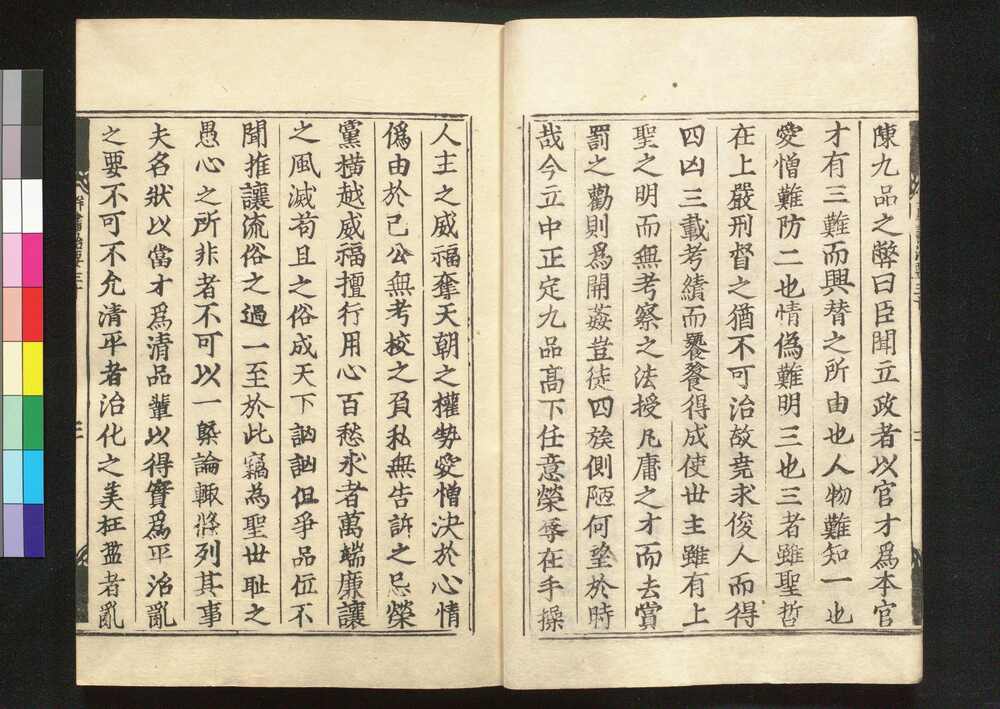 陳九品之弊曰臣聞立政者以官才為本官
才有三難而興替之所由也人物難知一也
愛憎難防二也情偽難明三也三者雖聖哲
在上嚴刑督之猶不可治故堯求俊人而得
四凶三載考績而饕餮得成使世主雖有上
聖之明而無考察之法授凡庸之才而去賞
罰之勸則為開姦豈徒四族側陋何望於時
哉今立中正定九品高下任意榮辱在手操
人主之威福奪天朝之權勢愛憎決於心情
偽由於己公無考校之負私無告訴之忌榮
黨橫越威福擅行用心百態求者萬端廉讓
之風滅苟且之俗成天下訩訩但爭品位不
聞推讓流俗之過一至於此竊為聖世耻之
愚心之所非者不可以一槩論輙將列其事
夫名狀以當才為清品輩以得實為平治亂
之要不可不允清平者治化之美枉濫者亂
群書治要三十
二